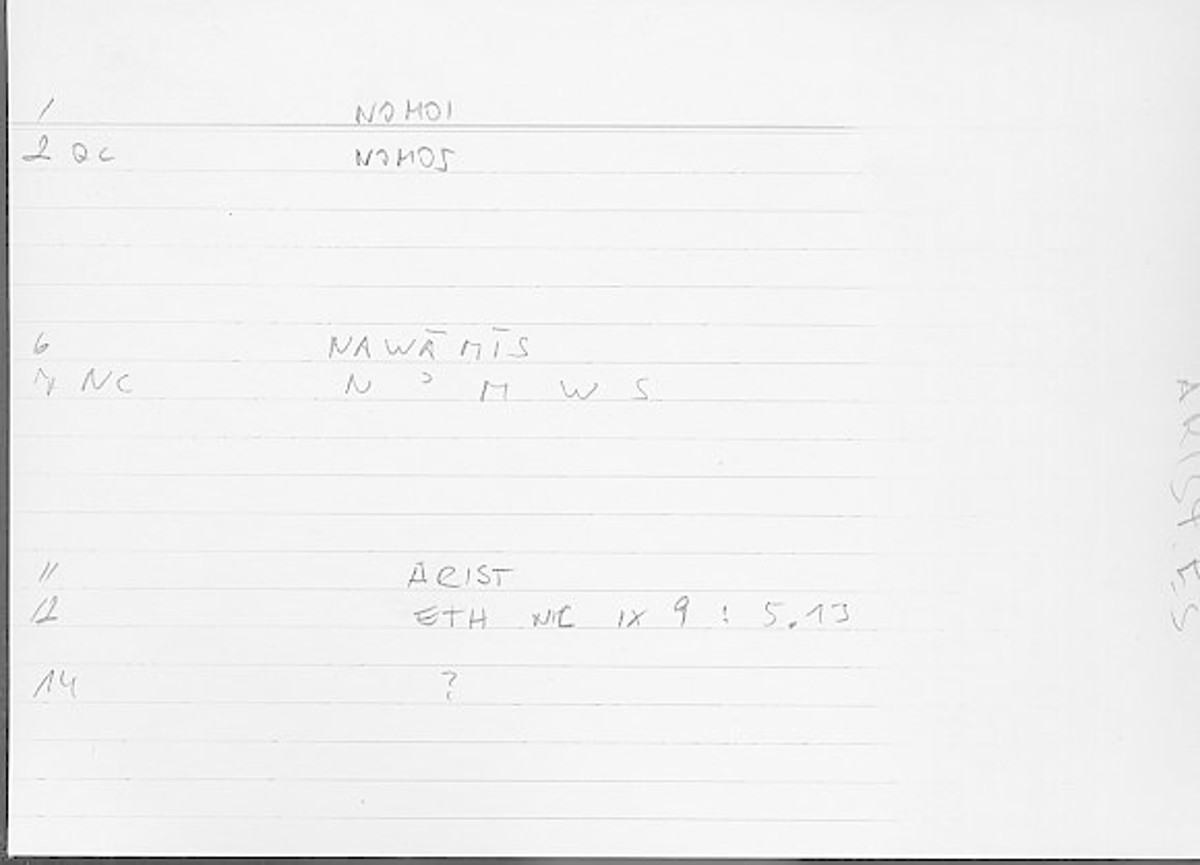 1 NOMOI
2 QC NOMOS
6 NAWĀMĪS
7 NC N ʾ M W S
11 ARIST
12 ETH NIC IX 9 : 5.13
14 ?